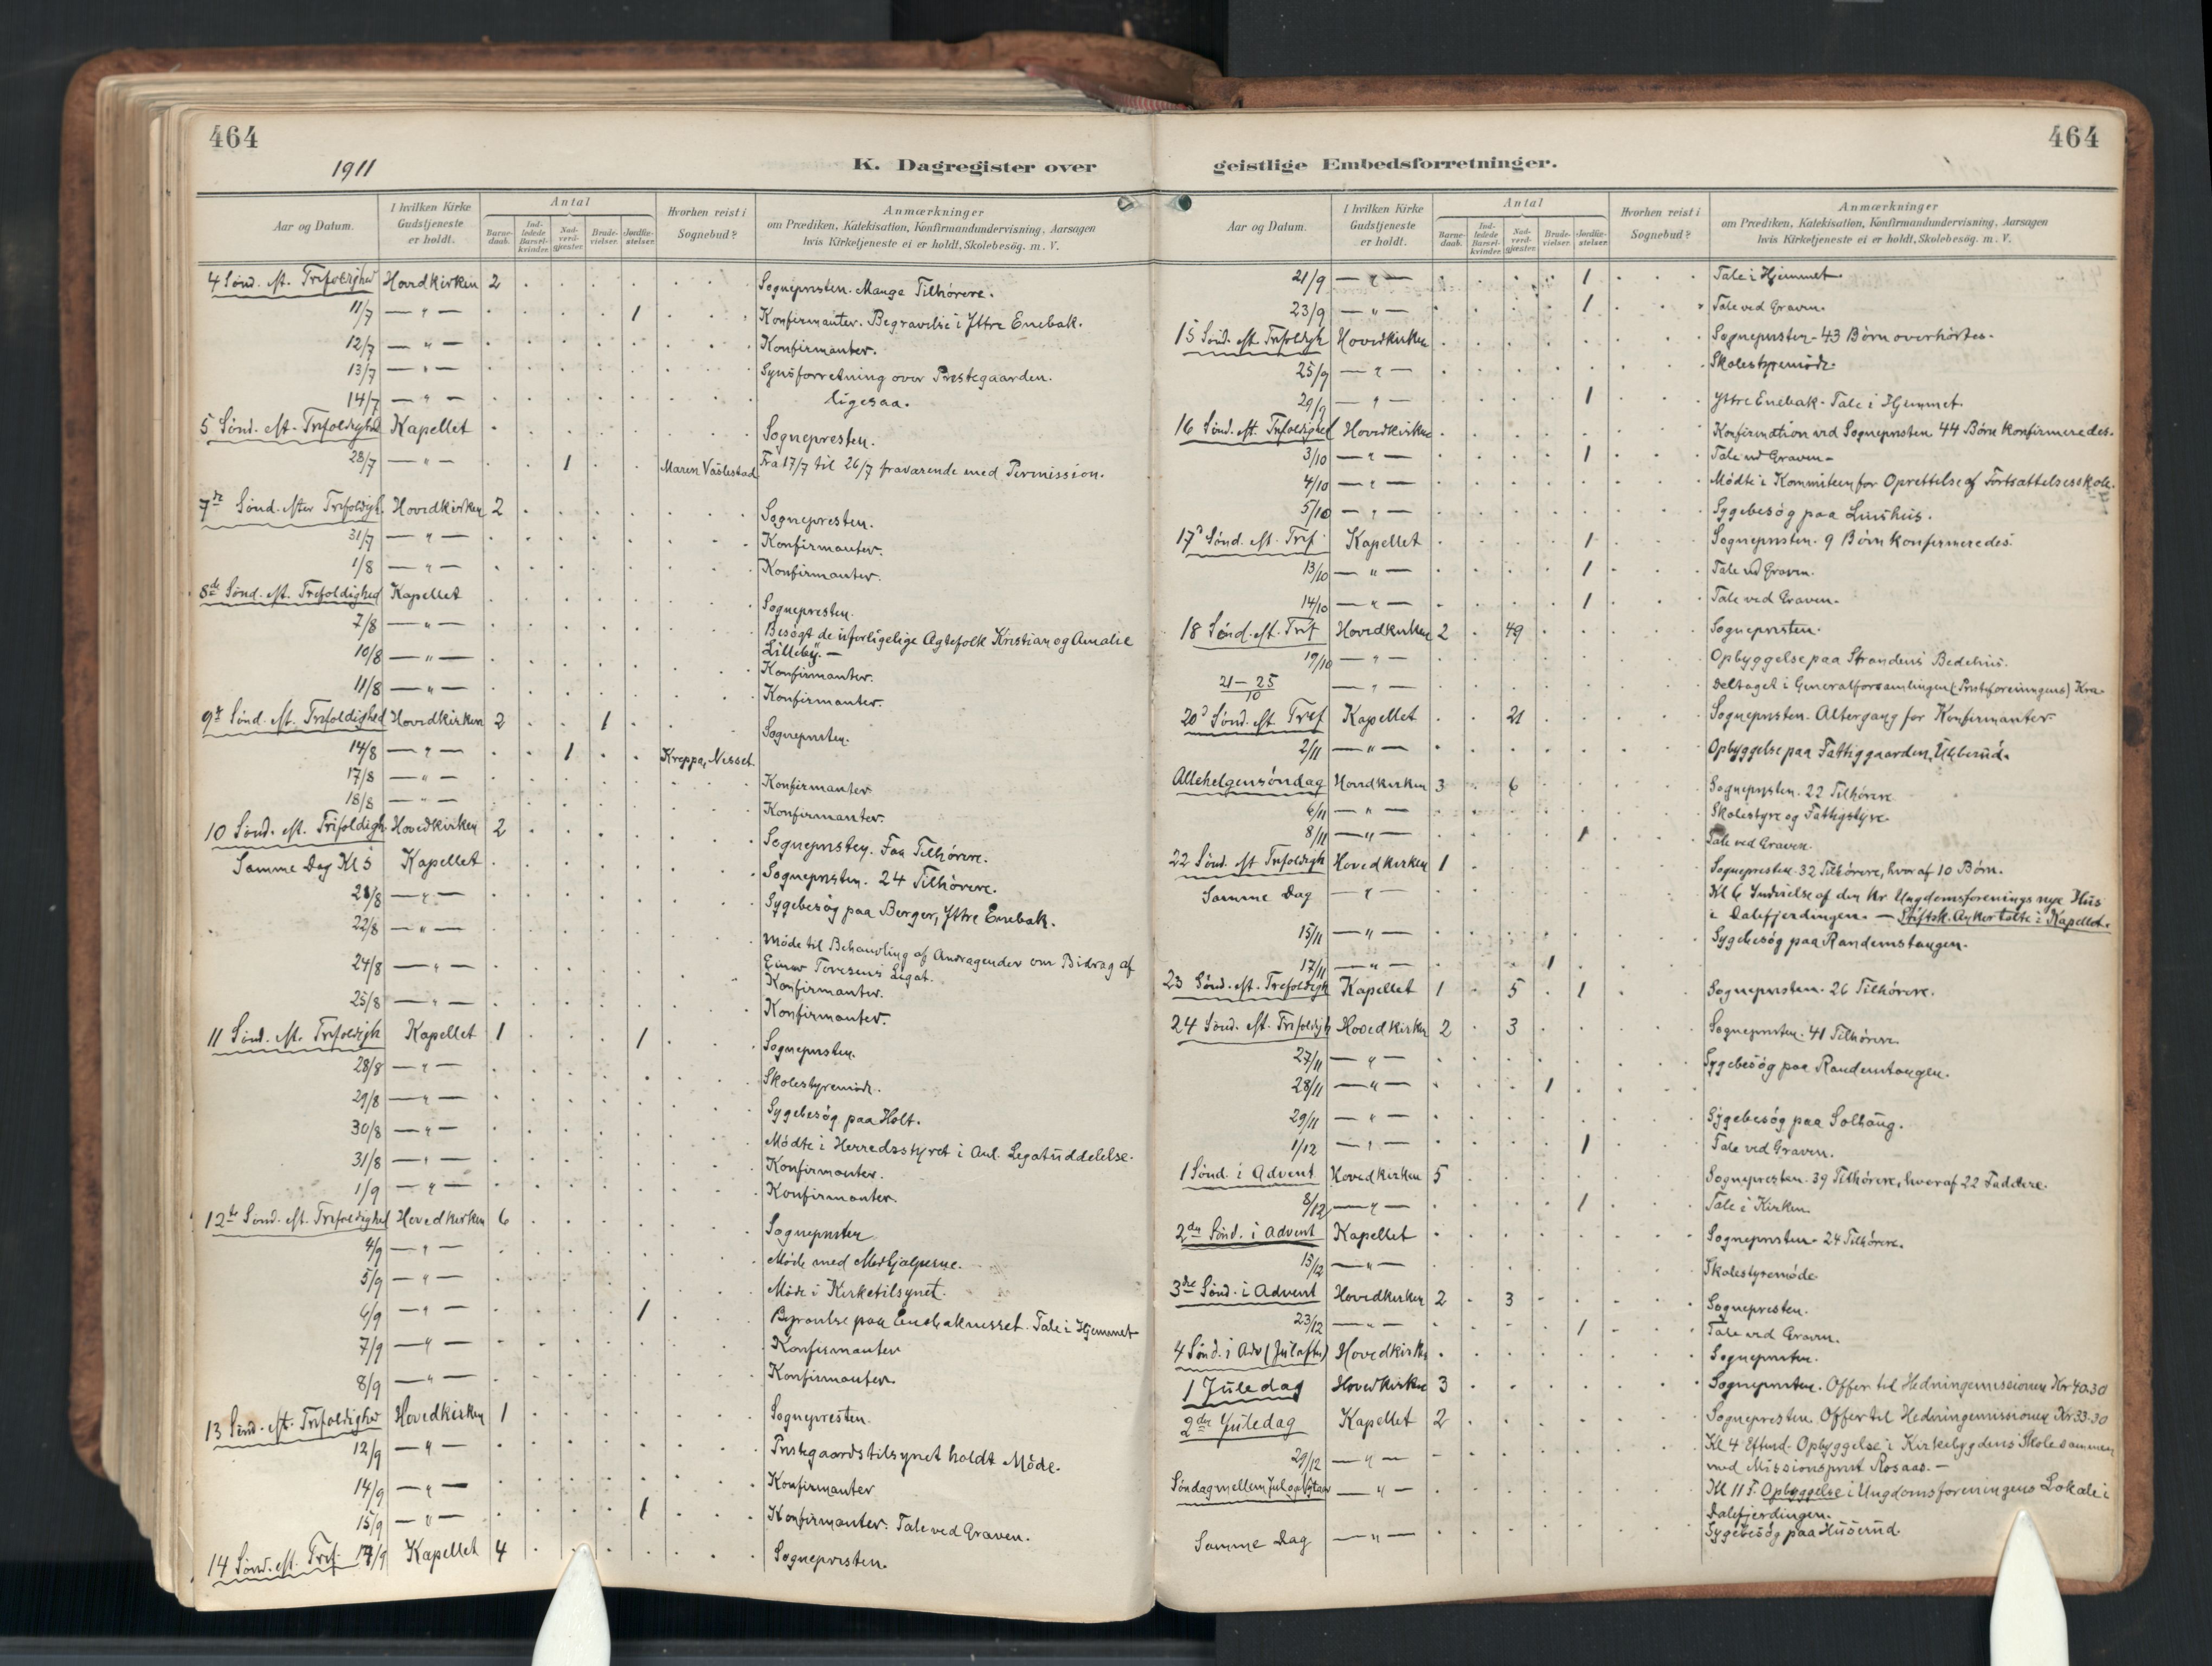 464
1911
K. Dagregister over
Aar og Datum. I hvilken Kirke Gudstjeneste er holdt. Antal Barnedaab. Indledede Barselkvinder. Nadverdgjæster. Brudevielser. Jordfæstelser. Hvorhen reist i Sognebud? Anmærkninger om Prædiken, Katekisation, Konfirmandundervisning, Aarsagen hvis Kirketjeneste ei er holdt, Skolebesög. m. V.
4 Sønd. eft. Trefoldighed Hovedkirken 2 Sognepresten. Mange Tilhörere.
11/7 — " — 1 Konfirmanter. Begravelse i Yttre Enebak.
12/7 — " — Konfirmanter.
13/7 — " — Synsforretning over Prestegaarden.
14/7 — " — ligesaa.
5 Sønd. eft. Trefoldighed Kapellet Sognepresten.
28/7 — " — 1 Maren Våslestad Fra 17/7 til 26/7 fraværende med Permission.
7de Sønd. efter Trefoldigh. Hovedkirken 2 Sognepresten.
31/7 — " — Konfirmanter.
1/8 — " — Konfirmanter.
8de Sønd. eft. Trefoldighed Kapellet Sognepresten.
7/8 — " — Besögt de uforligelige Ægtefolk Kristian og Amalie
Lilleby. —
10/8 — " — Konfirmanter.
11/8 — " — Konfirmanter.
9de Sønd. eft. Trefoldighed Hovedkirken 2 1 Sognepresten.
14/8 — " — 1 Kreppa, Nesset
17/8 — " — Konfirmanter
18/8 — " — Konfirmanter.
10 Sønd. eft. Trefoldigh. Hovedkirken 2 Sognepresten. Faa Tilhörere.
Samme Dag Kl 5 Kapellet Sognepresten. 24 Tilhörere.
21/8 — " — Sygebesög paa Berger, Yttre Enebak.
22/8 — " — Möde til Behandling af Andragender om Bidrag af
Einar Toresens Legat.
24/8 — " — Konfirmanter.
25/8 — " — Konfirmanter.
11 Sønd. eft. Trefoldigh Kapellet 1 1 Sognepresten.
28/8 — " — Skolestyremöde.
29/8 — " — Sygebesög paa Holt.
30/8 — " — Mödte i Herredsstyret i Anl. Legatuddelelse.
31/8 — " — Konfirmanter.
1/9 — " — Konfirmanter.
12te Sønd. eft. Trefoldighed Hovedkirken 6 Sognepresten
4/9 — " — Möde med Medhjælperne.
5/9 — " — Möde i Kirketilsynet.
6/9 — " — 1 paa Enebaknesset. Tale i Hjemmet
7/9 — " — Konfirmanter
8/9 — " — Konfirmanter.
13 Sønd. eft. Trefoldighed Hovedkirken 1 Sognepresten.
12/9 — " — Prestegaardstilsynet holdt Möde.
14/9 — " — Konfirmanter
15/9 — " — 1 Konfirmanter. Tale ved Graven.
14 Sønd. eft. Tref. 17/9 Kapellet 4 Sognepresten.
464
geistlige Embedsforretninger.
Aar og Datum. I hvilken Kirke Gudstjeneste er holdt. Antal Barnedaab. Indledede Barselkvinder. Nadverdgjæster. Brudevielser. Jordfæstelser. Hvorhen reist i Sognebud? Anmærkninger om Prædiken, Katekisation, Konfirmandundervisning, Aarsagen hvis Kirketjeneste ei er holdt, Skolebesög. m. V.
21/9 — " — 1 Tale i Hjemmet.
23/9 — " — 1 Tale ved Graven.
15 Sønd. eft. Trefoldigh Hovedkirken Sognepresten. 43 Børn overhörtes.
25/9 — " — Skolestyremöde.
29/9 — " — 1 Yttre Enebak. Tale i Hjemmet.
16 Sønd. eft. Trefoldighed Hovedkirken Konfirmation ved Sognepresten 44 Børn konfirmeredes.
3/10 — " — 1 Tale ved Graven.
4/10 — " — Mödte i Kommiteen for Oprettelse af Fortsættelsesskole.
5/10 — " — Sygebesög paa Lunhus.
17de Sønd. eft. Tref. Kapellet 1 Sognepresten. 9 Børn konfirmeredes.
13/10 — " — 1 Tale ved Graven.
14/10 — " — 1 Tale ved Graven.
18 Sønd. eft. Tref Hovedkirken 2 49 Sognepresten.
19/10 — " — Opbyggelse paa Strandens Bedehus.
21-25/10 — " — Deltaget i Generalforsamlingen (Presteforeningens) Kra.
20de Sønd. eft Tref Kapellet 21 Sognepresten. Altergang for Konfirmanter.
2/11 — " — Opbyggelse paa Fattiggaarden, Ubberud.
Allehelgensöndag Hovedkirken 3 6 Sognepresten. 22 Tilhörere
6/11 — " — Skolestyre og Fattigstyre.
8/11 — " — 1 Tale ved Graven.
22 Sønd. eft Trefoldigh Hovedkirken 1 Sognepresten. 32 Tilhörere, hvoraf 10 Børn.
Samme Dag — " — Kl 6 Indvielse af den kr. Ungdomsforenings nye Hus
i Dalefjerdingen. — Stiftsk. Anker talte i Kapellet.
15/11 — " — Sygebesög paa Randemstangen.
17/11 — " — 1
23 Sønd. eft. Trefoldigh Kapellet 1 5 1 Sognepresten. 26 Tilhörere.
24 Sønd. eft. Trefoldigh Hovedkirken 2 3 Sognepresten. 41 Tilhörere.
27/11 — " — Sygebesög paa Randemtangen.
28/11 — " — 1
29/11 — " — Sygebesög paa Solhaug.
1/12 — " — 1 Tale ved Graven.
1 Sønd. i Advent Hovedkirken 5 Sognepresten. 39 Tilhörere, hvoraf 22 Faddere.
8/12 — " — 1 Tale i Kirken.
2den Sønd. i Advent Kapellet Sognepresten. 24 Tilhörere.
15/12 — " — Skolestyremöde
3die Sønd. i Advent Hovedkirken 2 3 Sognepresten.
23/12 — " — 1 Tale ved Graven.
4 Sønd. i Adv (Juleaften) Hovedkirken Sognepresten.
1 Juledag Hovedkirken 3 Sognepresten. Offer til Hedningemissionen Kr 40.30
2den Juledag Kapellet 2 Sognepresten. Offer til Hedningemissionen Kr 33.30
29/12 — " — Kl 4 Efterm. Opbyggelse i Kirkebygdens Skole sammen
med Missionsprest Rosaas. —
Søndag mellem Jul og Nytaar — " — Kl 11 F. Opbyggelse i Ungdomsforeningens Lokale i
Dalefjerdingen.
Samme Dag — " — Sygebesög paa Huserud.